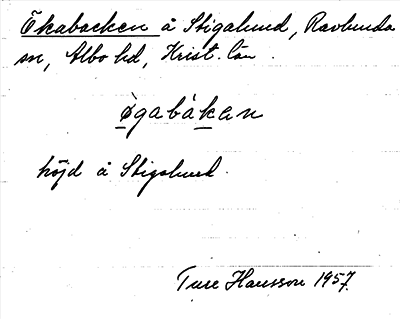 Ökabacken å Stigslund, Ravlunda
sn, Albo hd, Krist. län.
øgabákan
höjd å Stigslund.
Ture Hansson 1957.